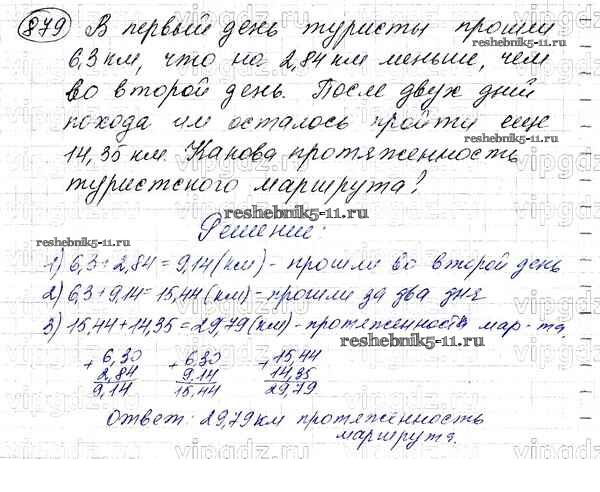 879 В первый день туристы прошли
reshebnik5-11.ru
6,3 км, что на 2,84 км меньше, чем
во второй день. После двух дней
похода им осталось пройти еще
14,35 км. Какова протяженность
туристского маршрута?
reshebnik5-11.ru
Решение:
reshebnik5-11.ru
1) 6,3 + 2,84 = 9,14 (км) - прошли во второй день
2) 6,3 + 9,14 = 15,44 (км) - прошли за два дня
3) 15,44 + 14,35 = 29,79 (км) - протяженность мар-та.
reshebnik5-11.ru
+ 6,30 + 6,30 + 15,44
2,84 9,14 14,35
9,14 15,44 29,79
Ответ: 29,79 км протяженность
маршрута.